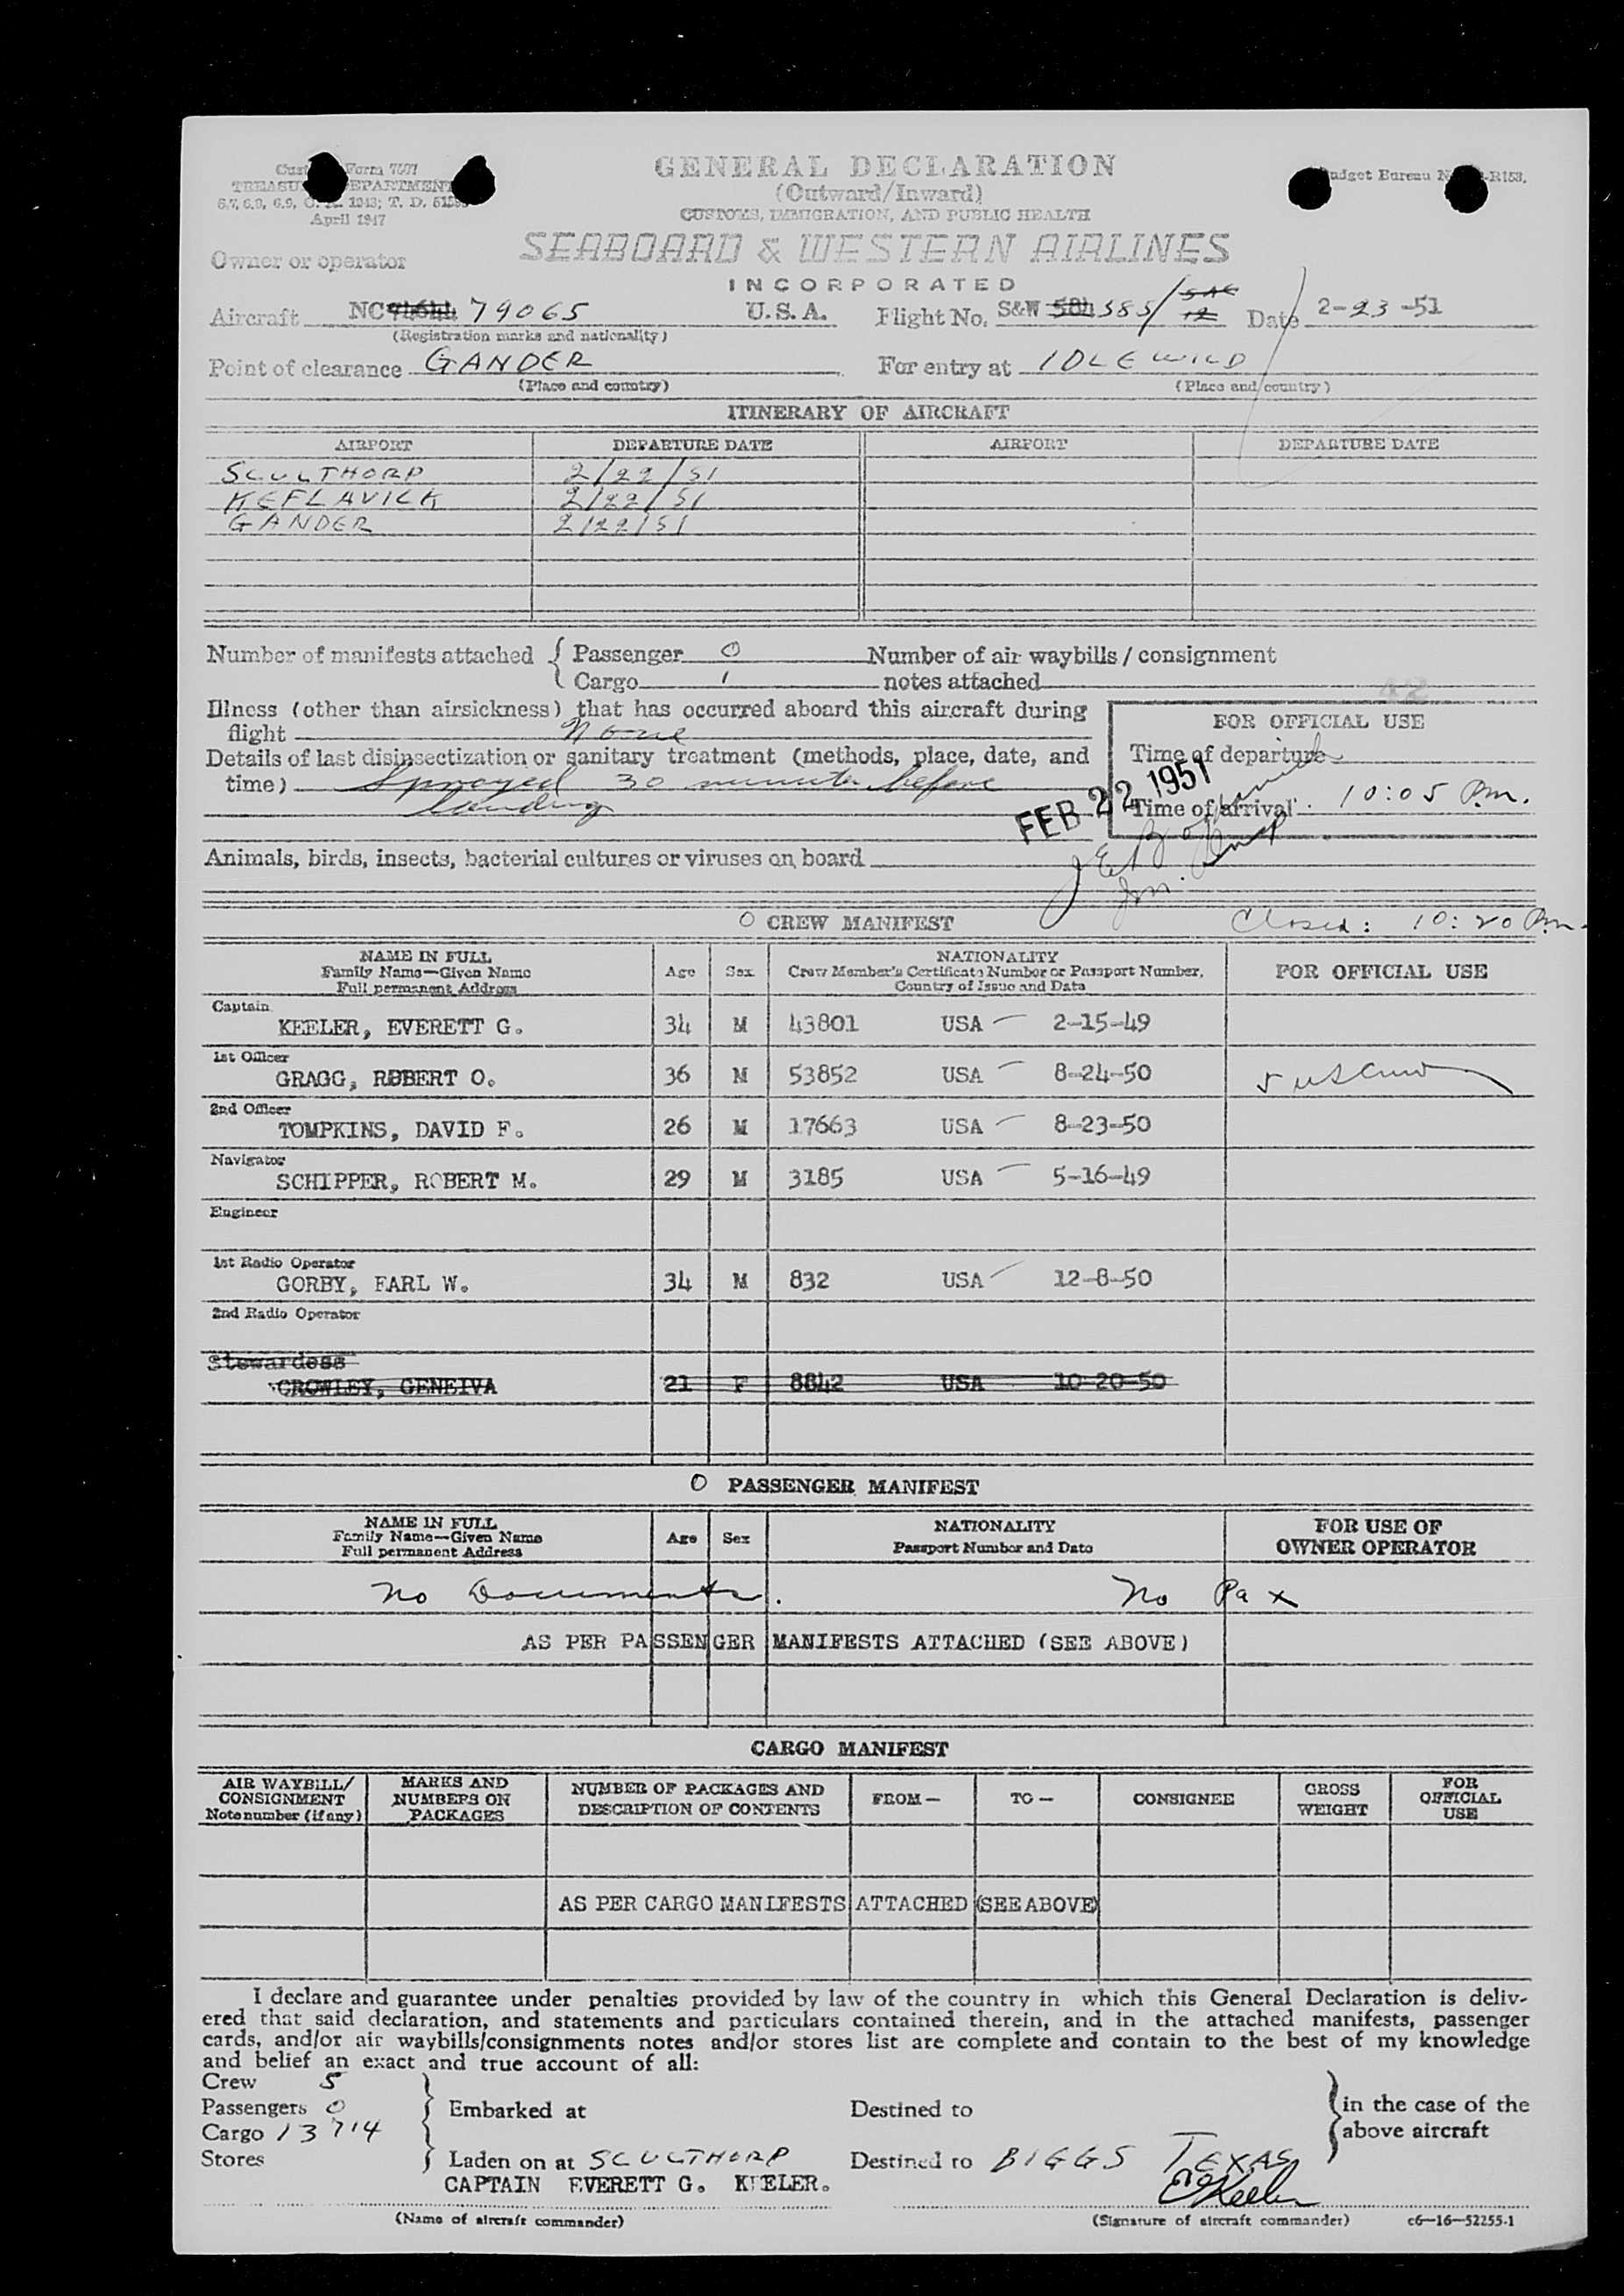 Form 7507
TREASURY DEPARTMENT
April 1947
GENERAL DECLARATION
(Outward/Inward)
CUSTOMS, IMMIGRATION, AND PUBLIC HEALTH
Budget Bureau
SEABOARD & WESTERN AIRLINES
INCORPORATED
Owner or operator
Aircraft NC 79065 U.S.A. Flight No. S&W 584 385/ SAC 12 Date 2-23-51
(Registration marks and nationality)
Point of clearance GANDER For entry at IDLEWILD
(Place and country) (Place and country)
ITINERARY OF AIRCRAFT
AIRPORT DEPARTURE DATE AIRPORT DEPARTURE DATE
SCULTHORP 2/22/51
KEFLAVICK 2/22/51
GANDER 2/22/51
Number of manifests attached { Passenger 0 Number of air waybills / consignment
Cargo 1 notes attached
Illness (other than airsickness) that has occurred aboard this aircraft during
flight None
Details of last disinsectization or sanitary treatment (methods, place, date, and
time) Sprayed 30 minutes before
landing
FOR OFFICIAL USE
Time of departure
FEB 22 1951
Time of arrival 10:05 P.m.
Animals, birds, insects, bacterial cultures or viruses on board
O CREW MANIFEST Closed: 10:20 Pm.
NAME IN FULL
Family Name—Given Name
Full permanent Address
Age Sex
NATIONALITY
Crew Member's Certificate Number or Passport Number,
Country of Issue and Data
FOR OFFICIAL USE
Captain
KEELER, EVERETT G. 34 M 43801 USA 2-15-49
1st Officer
GRAGG, ROBERT O. 36 M 53852 USA 8-24-50
5 US Crew
2nd Officer
TOMPKINS, DAVID F. 26 M 17663 USA 8-23-50
Navigator
SCHIPPER, ROBERT M. 29 M 3185 USA 5-16-49
Engineer
1st Radio Operator
GORBY, EARL W. 34 M 832 USA 12-8-50
2nd Radio Operator
Stewardess
CROWLEY, GENEIVA 21 F 8842 USA 10-20-50
O PASSENGER MANIFEST
NAME IN FULL
Family Name—Given Name
Full permanent Address
Age Sex
NATIONALITY
Passport Number and Date
FOR USE OF
OWNER OPERATOR
No Documents. No Pax
AS PER PASSENGER MANIFESTS ATTACHED (SEE ABOVE)
CARGO MANIFEST
AIR WAYBILL/
CONSIGNMENT
Note number (if any)
MARKS AND
NUMBERS ON
PACKAGES
NUMBER OF PACKAGES AND
DESCRIPTION OF CONTENTS
FROM —
TO —
CONSIGNEE
GROSS
WEIGHT
FOR
OFFICIAL
USE
AS PER CARGO MANIFESTS ATTACHED (SEE ABOVE)
I declare and guarantee under penalties provided by law of the country in which this General Declaration is deliv-
ered that said declaration, and statements and particulars contained therein, and in the attached manifests, passenger
cards, and/or air waybills/consignments notes and/or stores list are complete and contain to the best of my knowledge
and belief an exact and true account of all:
Crew 5
Passengers 0 Embarked at Destined to in the case of the
Cargo 13714 above aircraft
Stores Laden on at SCULTHORP Destined to BIGGS TEXAS
CAPTAIN EVERETT G. KEELER. EG Keeler
(Name of aircraft commander) (Signature of aircraft commander) c6—16—52255-1